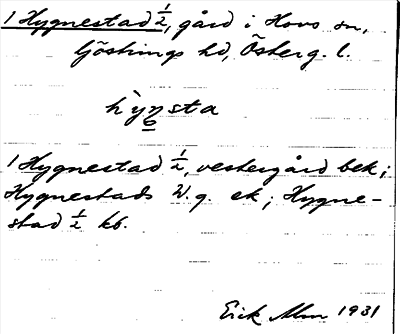 1 Hygnestad ½, gård i Hovs sn,
Göstrings hd, Österg. l.
hỳn̥sta
1 Hygnestad ½, vestergård bek;
Hygnestads W.g. ek; Hygne-
stad ½ kb.
Erik Alm 1931